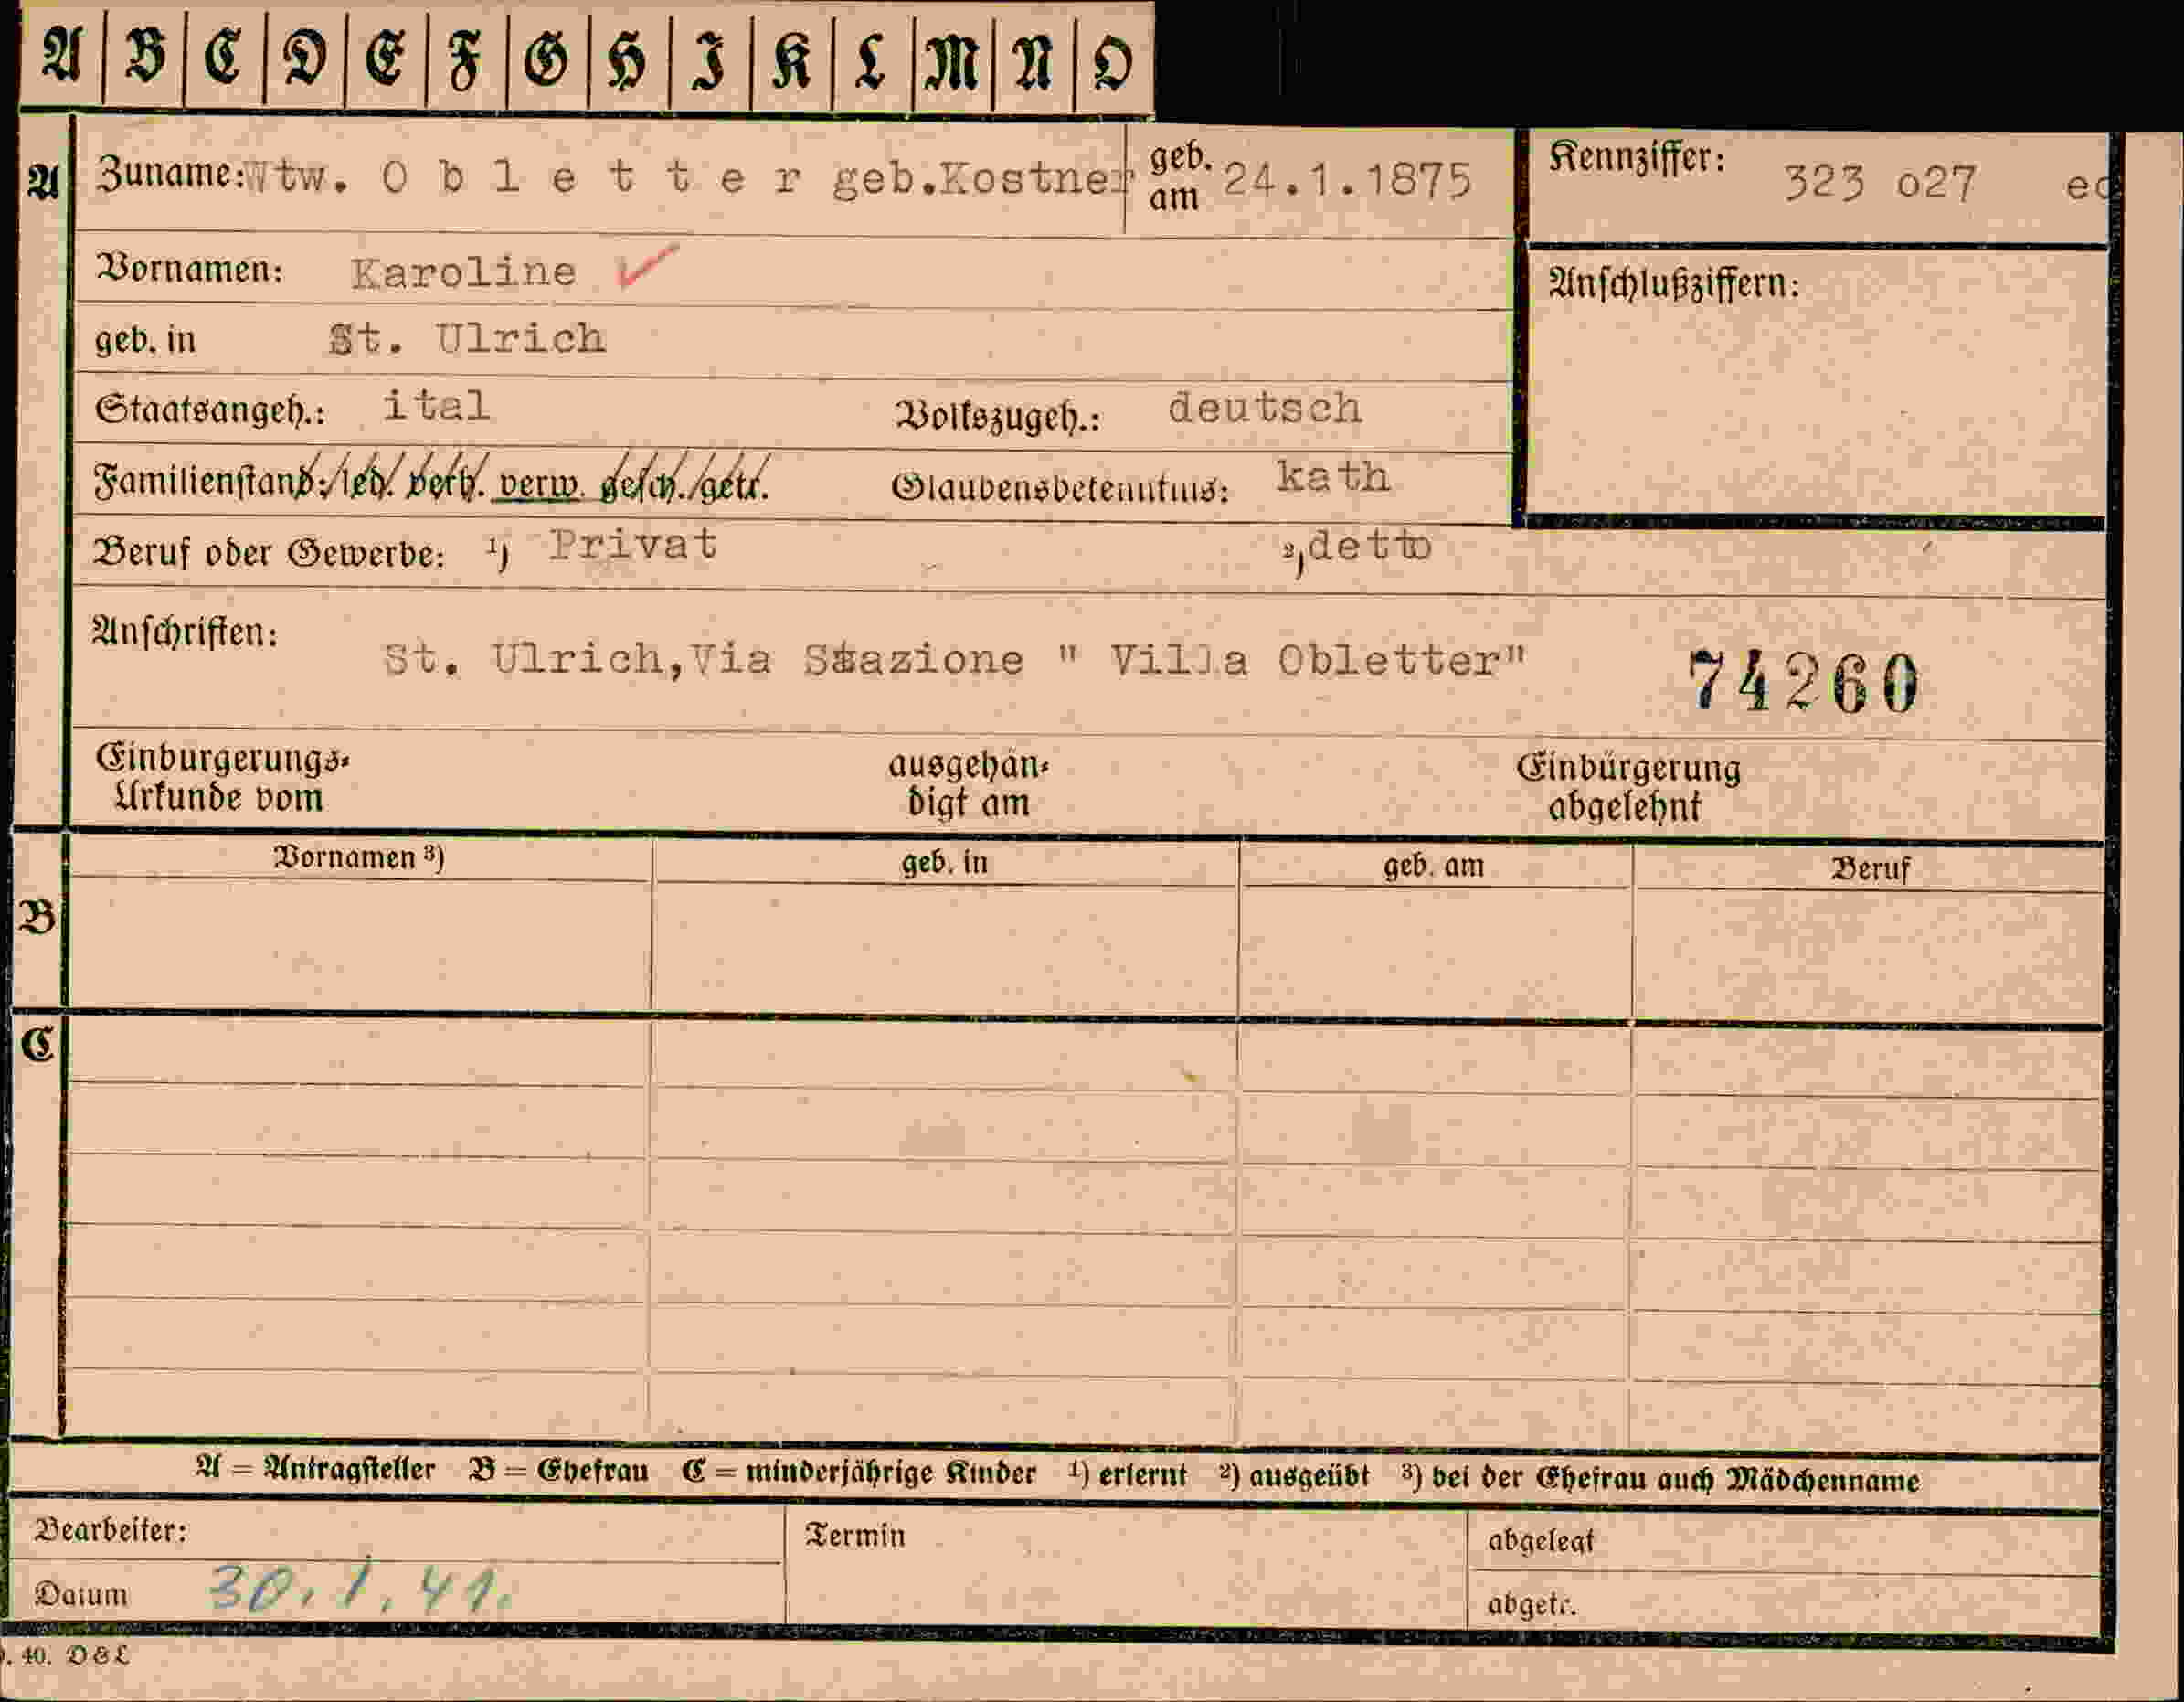 A B C D E F G H I K L M N O
A Zuname: Wtw. O b l e t t e r geb.Kostner geb. am 24.1.1875 Kennziffer: 323 o27
Vornamen: Karoline ✓
Anschlußziffern:
geb. in St. Ulrich
Staatsangeh.: ital Volkszugeh.: deutsch
Familienstand: led. verh. verw. gesch. getr. Glaubensbekenntnis: kath
Beruf oder Gewerbe: 1) Privat 2) detto
Anschriften: St. Ulrich,Via Stazione " Villa Obletter" 74260
Einbürgerungs- ausgehän- Einbürgerung
Urkunde vom digt am abgelehnt
Vornamen 3) geb. in geb. am Beruf
B
C
A = Antragsteller B = Ehefrau C = minderjährige Kinder 1) erlernt 2) ausgeübt 3) bei der Ehefrau auch Mädchenname
Bearbeiter: Termin abgelegt
Datum 30.1.41. abgetr.
. 40. D & L